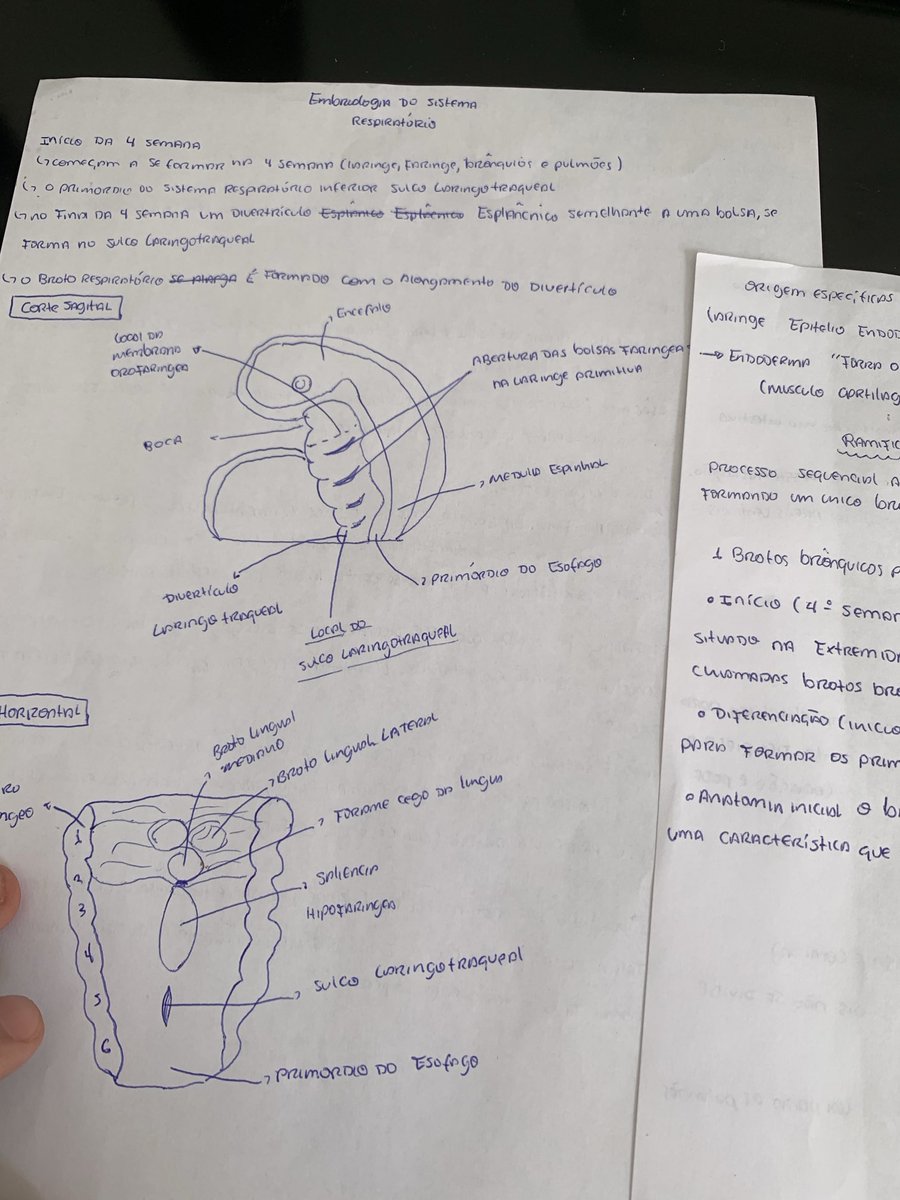 Embriologia do sistema
respiratório
Início da 4 semana
↳ começam a se formar na 4 semana (laringe, faringe, brônquios e pulmões)
↳ o primordio do sistema respiratório inferior sulco laringotraqueal
↳ no final da 4 semana um divertrículo Esplânico Esplâcnico Esplâncnico semelhante a uma bolsa, se
forma no sulco laringotraqueal
↳ o broto respiratório se alarga é formado com o alongamento do divertículo
Corte sagital
Encefalo
Local da
membrana
orofaringea
Abertura das bolsas faringea
na laringe primitiva
Boca
Medula espinhal
Primórdio do Esofago
Divertículo
laringotraqueal
Local do
sulco laringotraqueal
Horizontal
Broto lingual
mediano
Broto lingual lateral
Forame cego da lingua
Saliencia
hipofaringea
Sulco laringotraqueal
Primordio do Esofago
1
2
3
4
5
6
Origem específicas
Laringe Epitelio Endod
→ Endoderma "forra o
(musculo cartilag
Ramific
Processo sequencial a
formando um unico bro
1 Brotos brônquicos p
• Início (4ª semana
situado na extremid
chamadas brotos br
• Diferenciação (inicio
para formar os prim
• Anatomia inicial o b
uma característica que